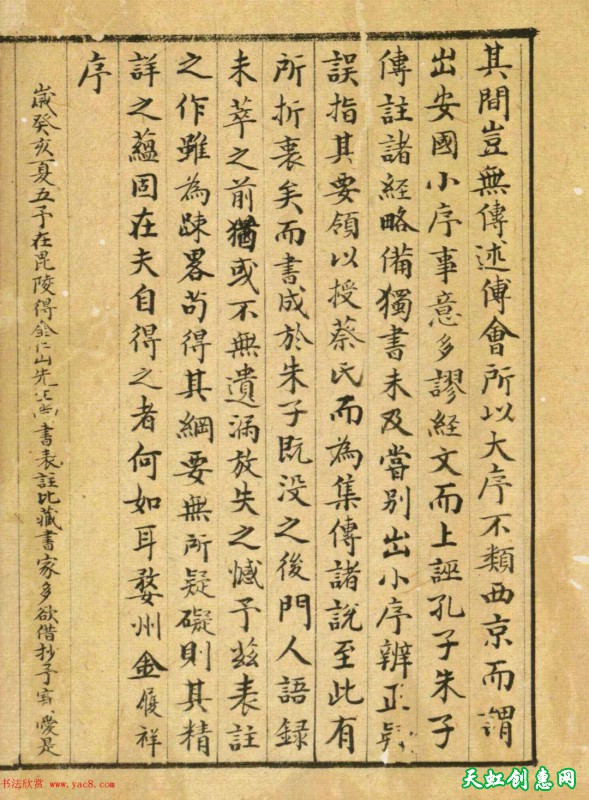 其間豈無傳述傅會所以大序不類西京而謂
出安國小序事意多謬經文而上誣孔子朱子
傳註諸經略備獨書未及嘗別出小序辨正
誤指其要領以授蔡氏而為集傳諸說至此有
所折衷矣而書成於朱子既没之後門人語録
未萃之前猶或不無遺漏放失之憾予茲表註
之作雖為踈畧茍得其綱要無所疑礙則其精
詳之蘊固在夫自得之者何如耳婺州金履祥
序
歲癸亥夏五予在毘陵得金仁山先生尚書表註比藏書家多欲借抄予寔愛是
书法欣赏 www.yac8.com
天虹创惠网